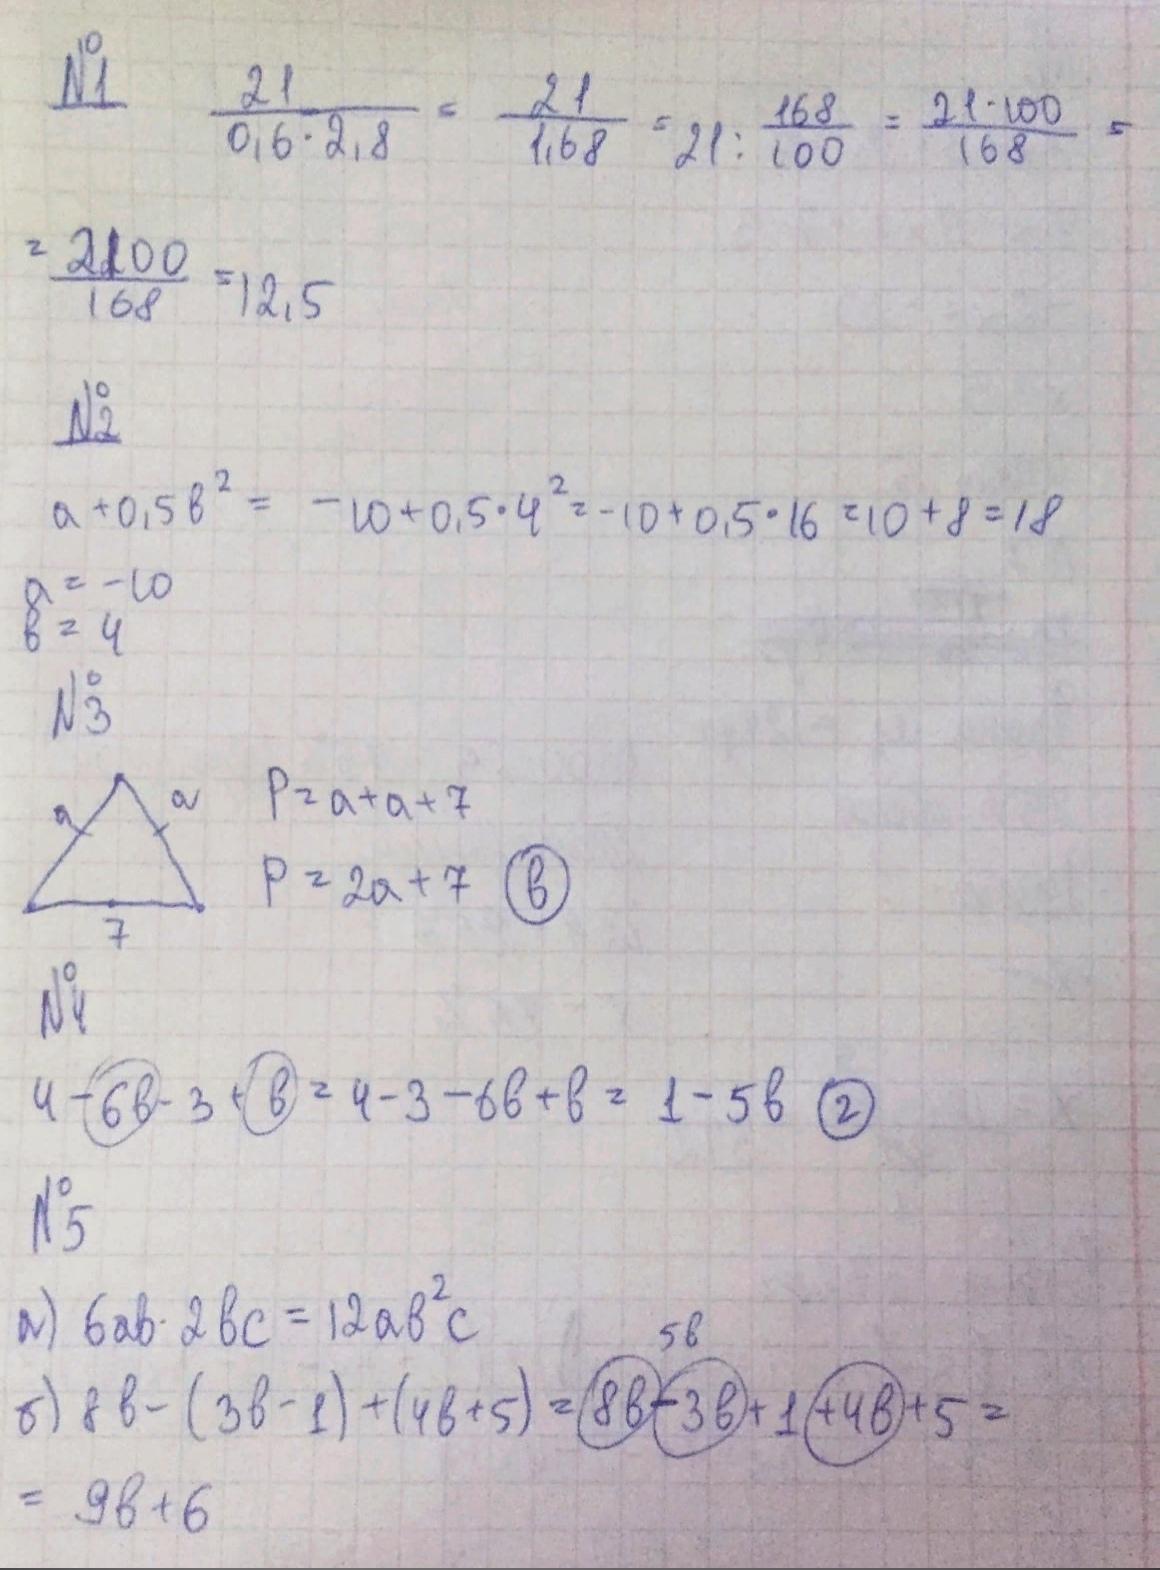 №1 21/(0,6·2,8) = 21/1,68 = 21 : 168/100 = 21·100/168 =
= 2100/168 = 12,5
№2
a + 0,5в² = -10 + 0,5·4² = -10 + 0,5·16 = 10 + 8 = 18
a = -10
в = 4
№3
a a P = a + a + 7
P = 2a + 7 в
7
№4
4 - 6в - 3 + в = 4 - 3 - 6в + в = 1 - 5в 2
№5
а) 6ав · 2вс = 12ав²с
5в
б) 8в - (3в - 1) + (4в + 5) = 8в - 3в + 1 + 4в + 5 =
= 9в + 6